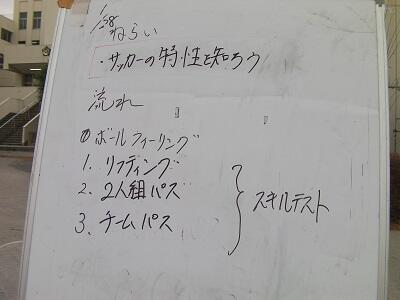 1/28
ねらい
・サッカーの特性を知ろう
流れ
0 ボールフィーリング
1. リフティング
2. 2人組パス
3. チームパス
スキルテスト